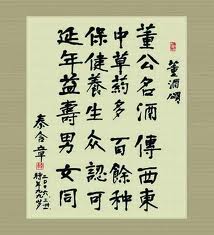 董酒頌
董公名酒傳西東
中草藥多百餘种
保健養生众認可
延年益壽男女同
秦含章
二〇〇六
行年九九岁